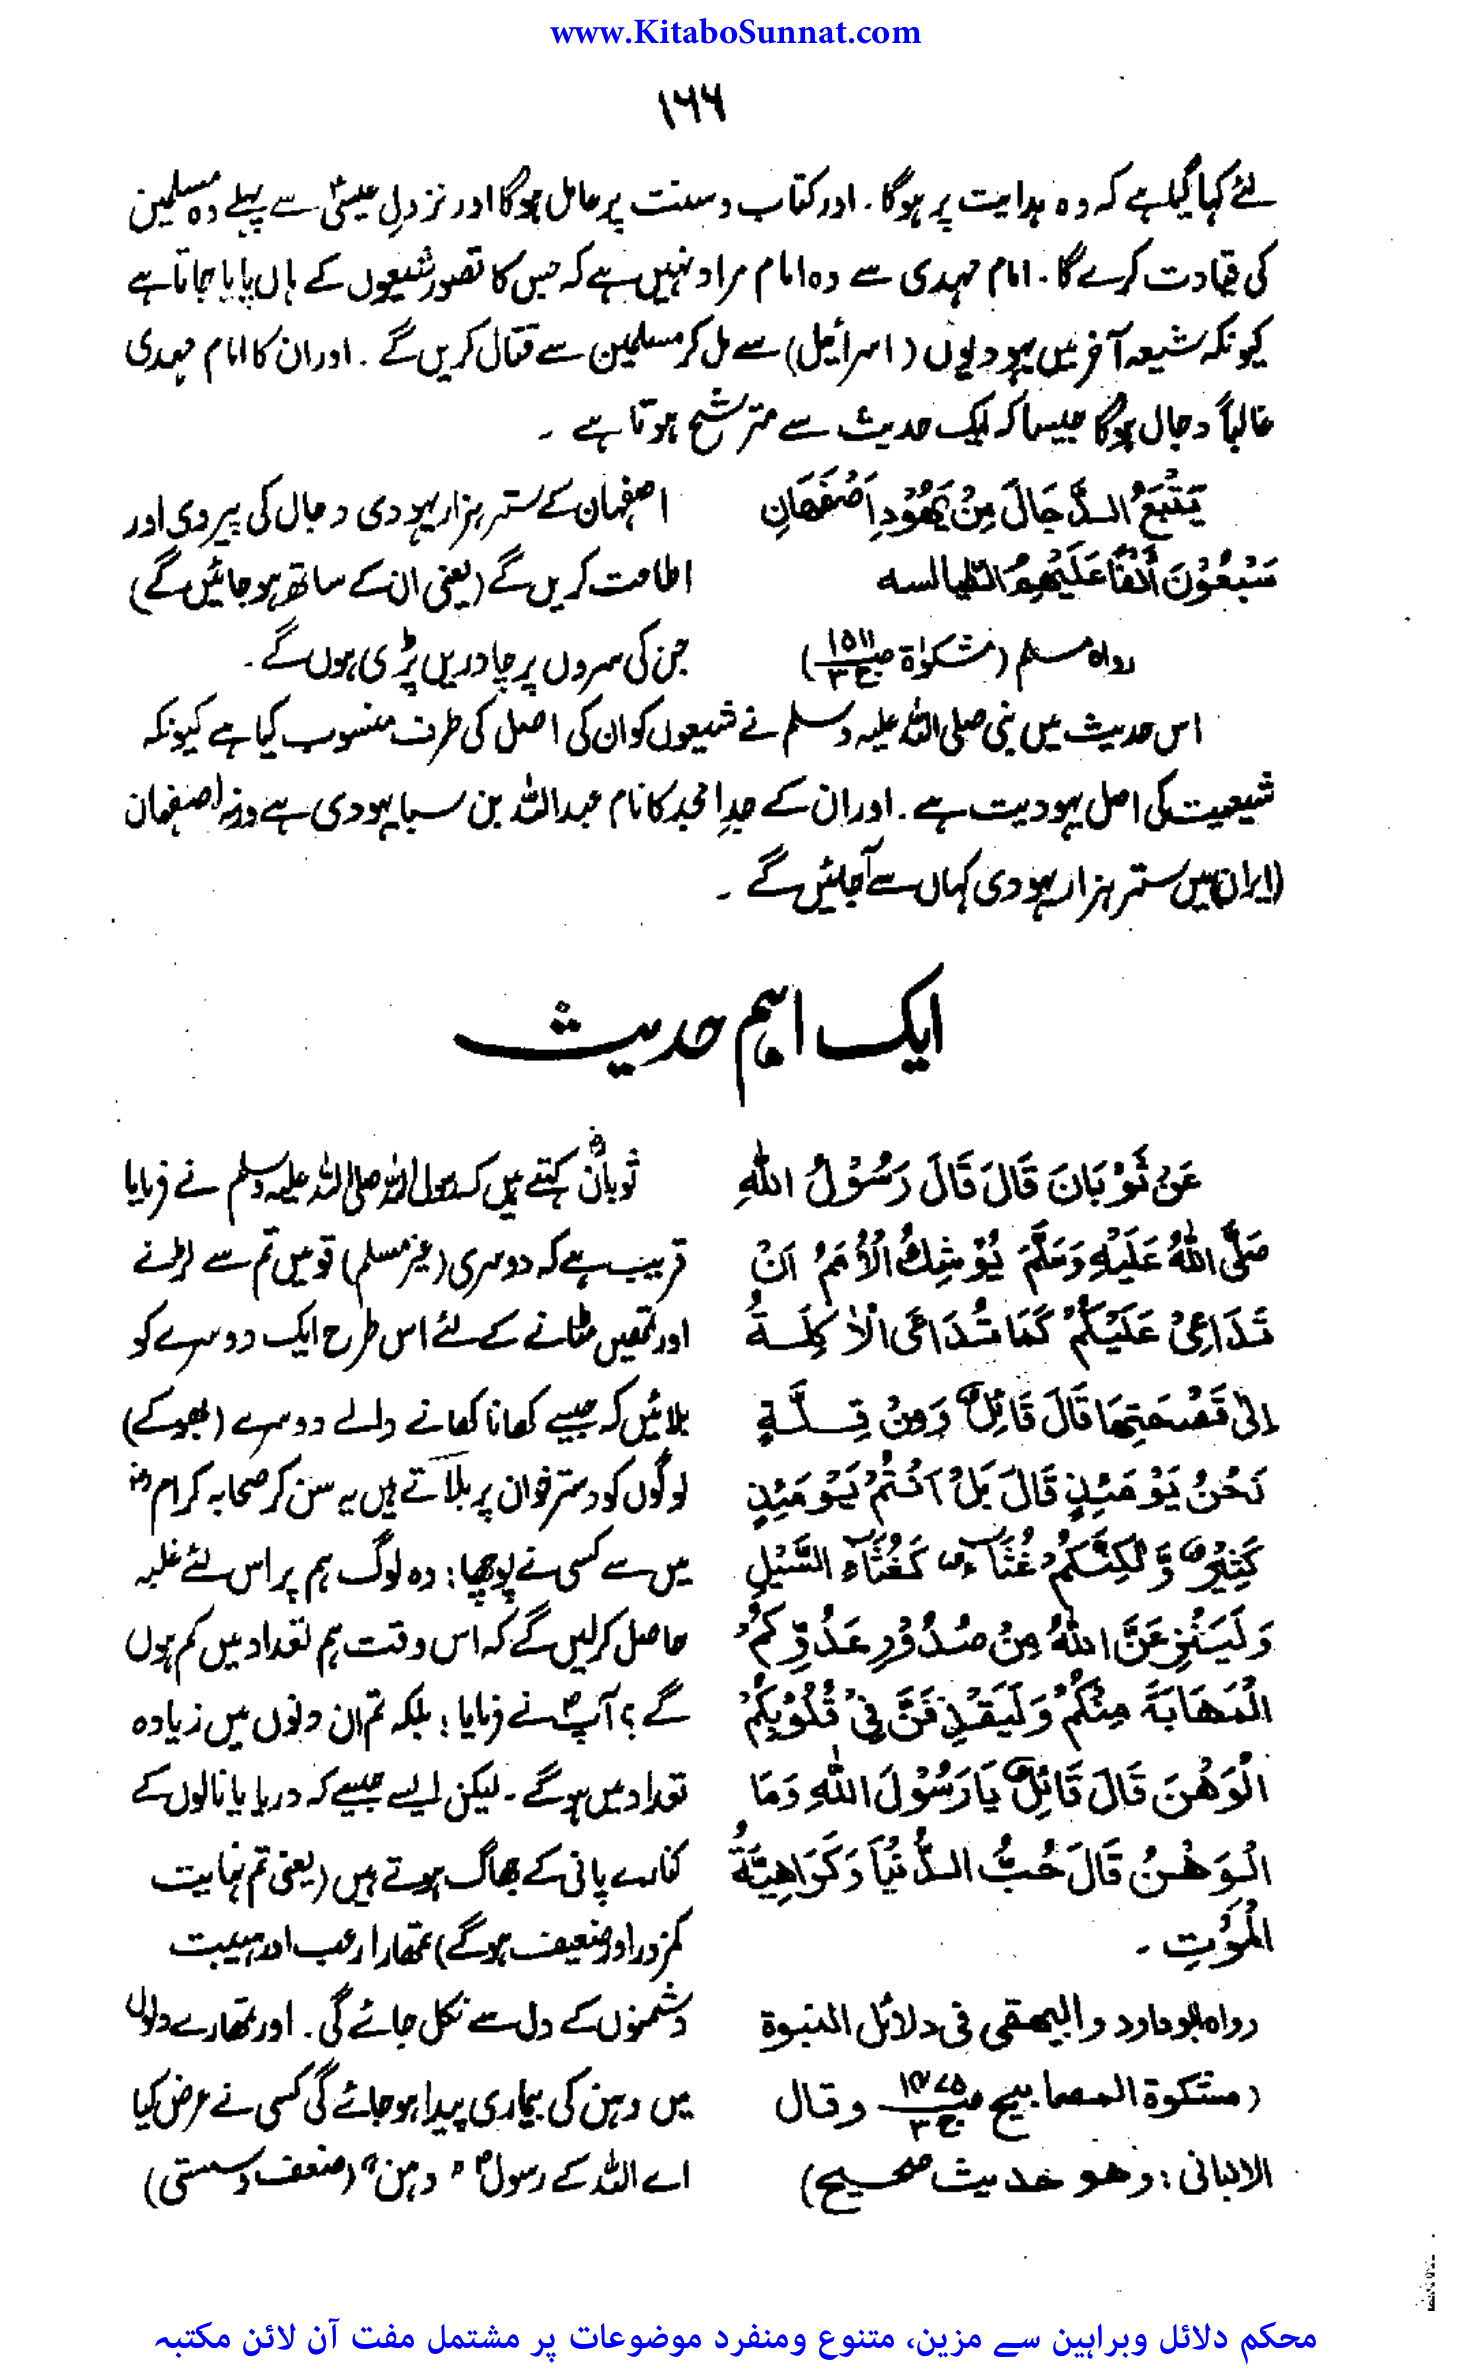 www.KitaboSunnat.com
۱۶۶
لئے کہا گیا ہے کہ وہ ہدایت پر ہوگا۔ اور کتاب و سنت پر عامل ہوگا اور نزدلِ عیسیٰؑ سے پہلے وہ مسلمین
کی قیادت کرے گا۔ امام مہدی سے وہ امام مراد نہیں ہے کہ جس کا تصور شیعوں کے ہاں پایا جاتا ہے
کیونکہ شیعہ آخر میں یہودیوں (اسرائیل) سے مل کر مسلمین سے قتال کریں گے۔ اور ان کا امام مہدی
غالباً دجال ہوگا جیسا کہ ایک حدیث سے مترشح ہوتا ہے ۔
يَتْبَعُ الدَّجَالَ مِنْ يَهُوْدِ اَصْفَهَانِ
سَبْعُوْنَ أَلْفًا عَلَيْهِمُ الطيالسه
رواہ مسلم (مشکوٰۃ ص۱۵۱۱ ج۳)
اصفہان کے ستر ہزار یہودی دجال کی پیروی اور
اطاعت کریں گے (یعنی ان کے ساتھ ہو جائیں گے)
جن کی سروں پر چادریں پڑی ہوں گے۔
اس حدیث میں نبی صلی اللہ علیہ وسلم نے شیعوں کو ان کی اصل کی طرف منسوب کیا ہے کیونکہ
شیعیت کی اصل یہودیت ہے۔ اور ان کے جدِ امجد کا نام عبداللہ بن سبا یہودی ہے ورنہ اصفہان
(ایران) میں ستر ہزار یہودی کہاں سے آجائیں گے ۔
ایک اہم حدیث
عَنْ ثَوْبَانَ قَالَ قَالَ رَسُوْلُ اللهِ
صَلَّى اللهُ عَلَيْهِ وَسَلَّمَ يُوْشِكُ الْأُمَمُ اَنْ
تَدَاعِىْ عَلَيْكُمْ كَمَا تُدَاعَى الْاٰكِلَةُ
اِلىٰ قَصْعَتِهَا قَالَ قَائِلٌ وَمِنْ قِلَّةٍ
نَحْنُ يَوْمَئِذٍ قَالَ بَلْ اَنْتُمْ يَوْمَئِذٍ
كَثِيْرٌ وَّلٰكِنَّكُمْ غُثَآءٌ كَغُثَآءِ السَّيْلِ
وَلَيَنْزِعَنَّ اللهُ مِنْ صُدُوْرِ عَدُوِّكُمْ
الْمَهَابَةَ مِنْكُمْ وَلَيَقْذِفَنَّ فِىْ قُلُوْبِكُمْ
الْوَهْنَ قَالَ قَائِلٌ يَا رَسُوْلَ اللهِ وَمَا
الْوَهْنُ قَالَ حُبُّ الدُّنْيَا وَكَرَاهِيَّةُ
الْمَوْتِ ۔
رواہ ابوداود والبيهقى فى دلائل النبوة
(مشكوة المصابيح ص۱۴۷۵ ج۳ وقال
الالبانى: وهو حديث صحيح)
ثوبانؓ کہتے ہیں کہ رسول اللہ صلی اللہ علیہ وسلم نے فرمایا
قریب ہے کہ دوسری (غیر مسلم) قومیں تم سے لڑنے
اور تمھیں مٹانے کے لئے اس طرح ایک دوسرے کو
بلائیں کہ جیسے کھانا کھانے والے دوسرے (بھوکے)
لوگوں کو دسترخوان پر بلاتے ہیں یہ سن کر صحابہ کرامؓ
میں سے کسی نے پوچھا: وہ لوگ ہم پر اس لئے غلبہ
حاصل کرلیں گے کہ اس وقت ہم تعداد میں کم ہوں
گے؟ آپؐ نے فرمایا: بلکہ تم ان دنوں میں زیادہ
تعداد میں ہوگے۔ لیکن ایسے جیسے کہ دریا یا نالوں کے
کنارے پانی کے جھاگ ہوتے ہیں (یعنی تم نہایت
کمزور اور ضعیف ہوگے) تمھارا رعب اور ہیبت
دشمنوں کے دل سے نکل جائے گی۔ اور تمھارے دلوں
میں وہن کی بیماری پیدا ہو جائے گی کسی نے عرض کیا
اے اللہ کے رسولؐ "وہن" (ضعف و سستی)
محکم دلائل وبراہین سے مزین، متنوع ومنفرد موضوعات پر مشتمل مفت آن لائن مکتبہ